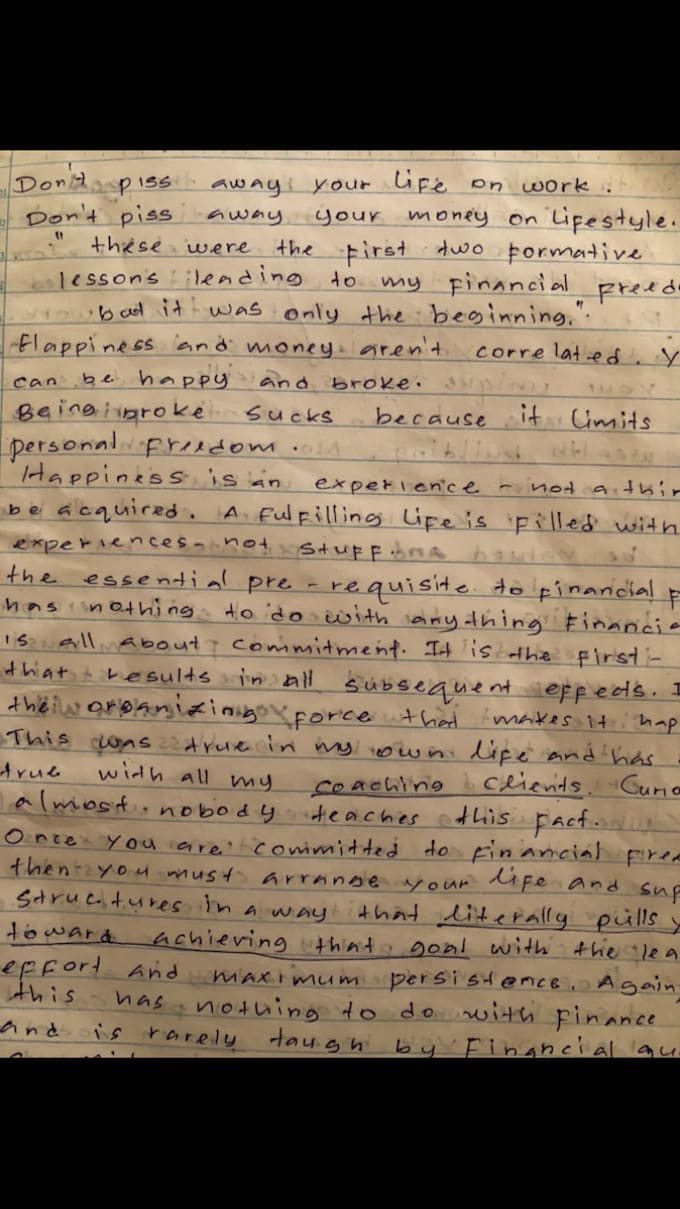 Don't piss away your life on work.
Don't piss away your money on lifestyle.
." these were the first two formative
lessons leading to my financial freed
but it was only the beginning.".
Happiness and money aren't correlated. Y
can be happy and broke.
Being broke sucks because it limits
personal freedom.
Happiness is an experience - not a thin
be acquired. A fulfilling life is filled with
experiences - not stuff.
the essential pre-requisite to financial f
has nothing to do with anything financia
is all about commitment. It is the first -
that results in all subsequent effects. I
the organizing force that makes it hap
This was true in my own life and has
true with all my coaching clients. Curio
almost nobody teaches this fact.
Once you are committed to financial free
then you must arrange your life and sup
structures in a way that literally pulls y
toward achieving that goal with the lea
effort and maximum persistence. Again,
this has nothing to do with finance
and is rarely taugh by financial gu